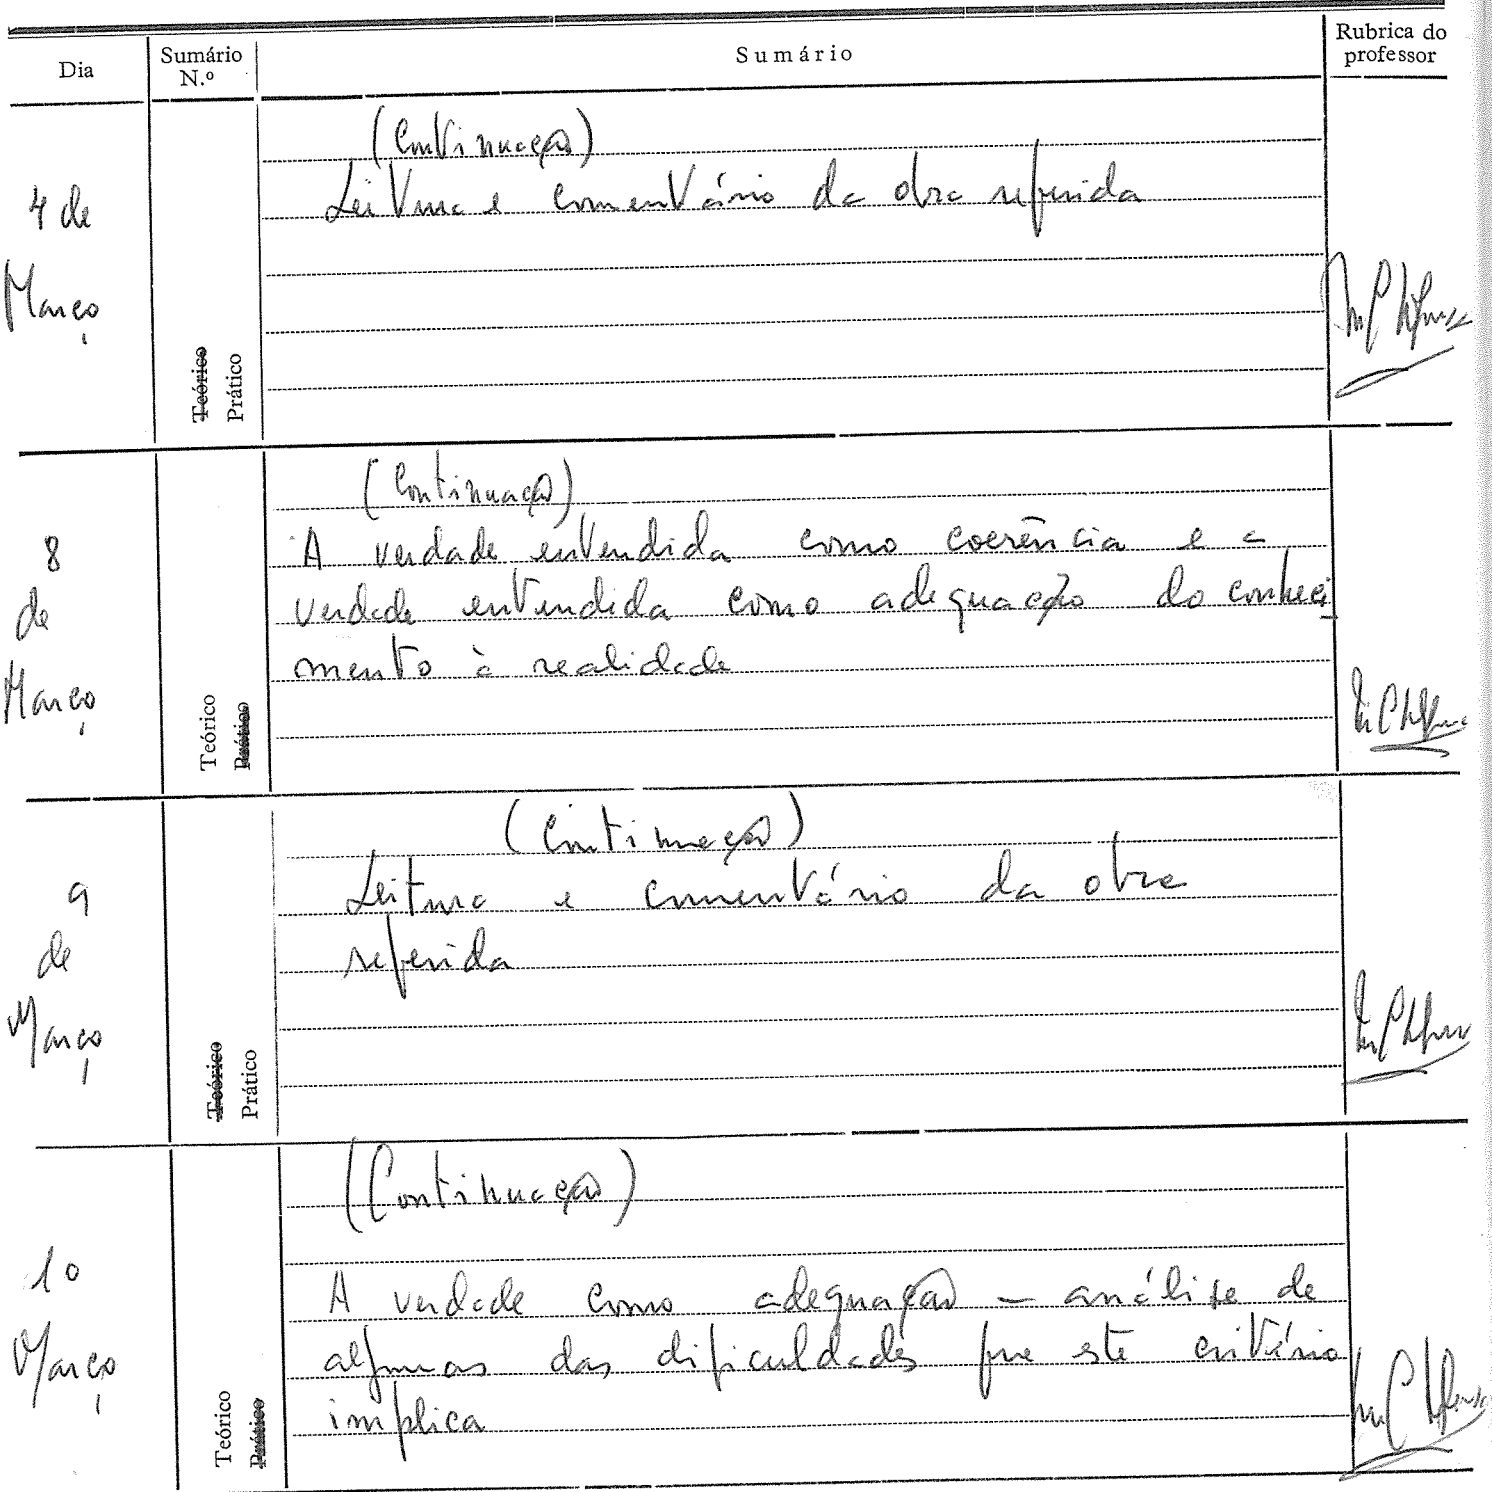 Dia
Sumário
N.º
Sumário
Rubrica do
professor
4 de
Março
Teórico
Prático
(Continuação)
Leitura e comentário da obra referida
8
de
Março
Teórico
Prático
(Continuação)
A verdade entendida como coerência e a
verdade entendida como adequação do conheci
mento à realidade
9
de
Março
Teórico
Prático
(Continuação)
Leitura e comentário da obra
referida
10
Março
Teórico
Prático
(Continuação)
A verdade como adequação — análise de
algumas das dificuldades que este critério
implica